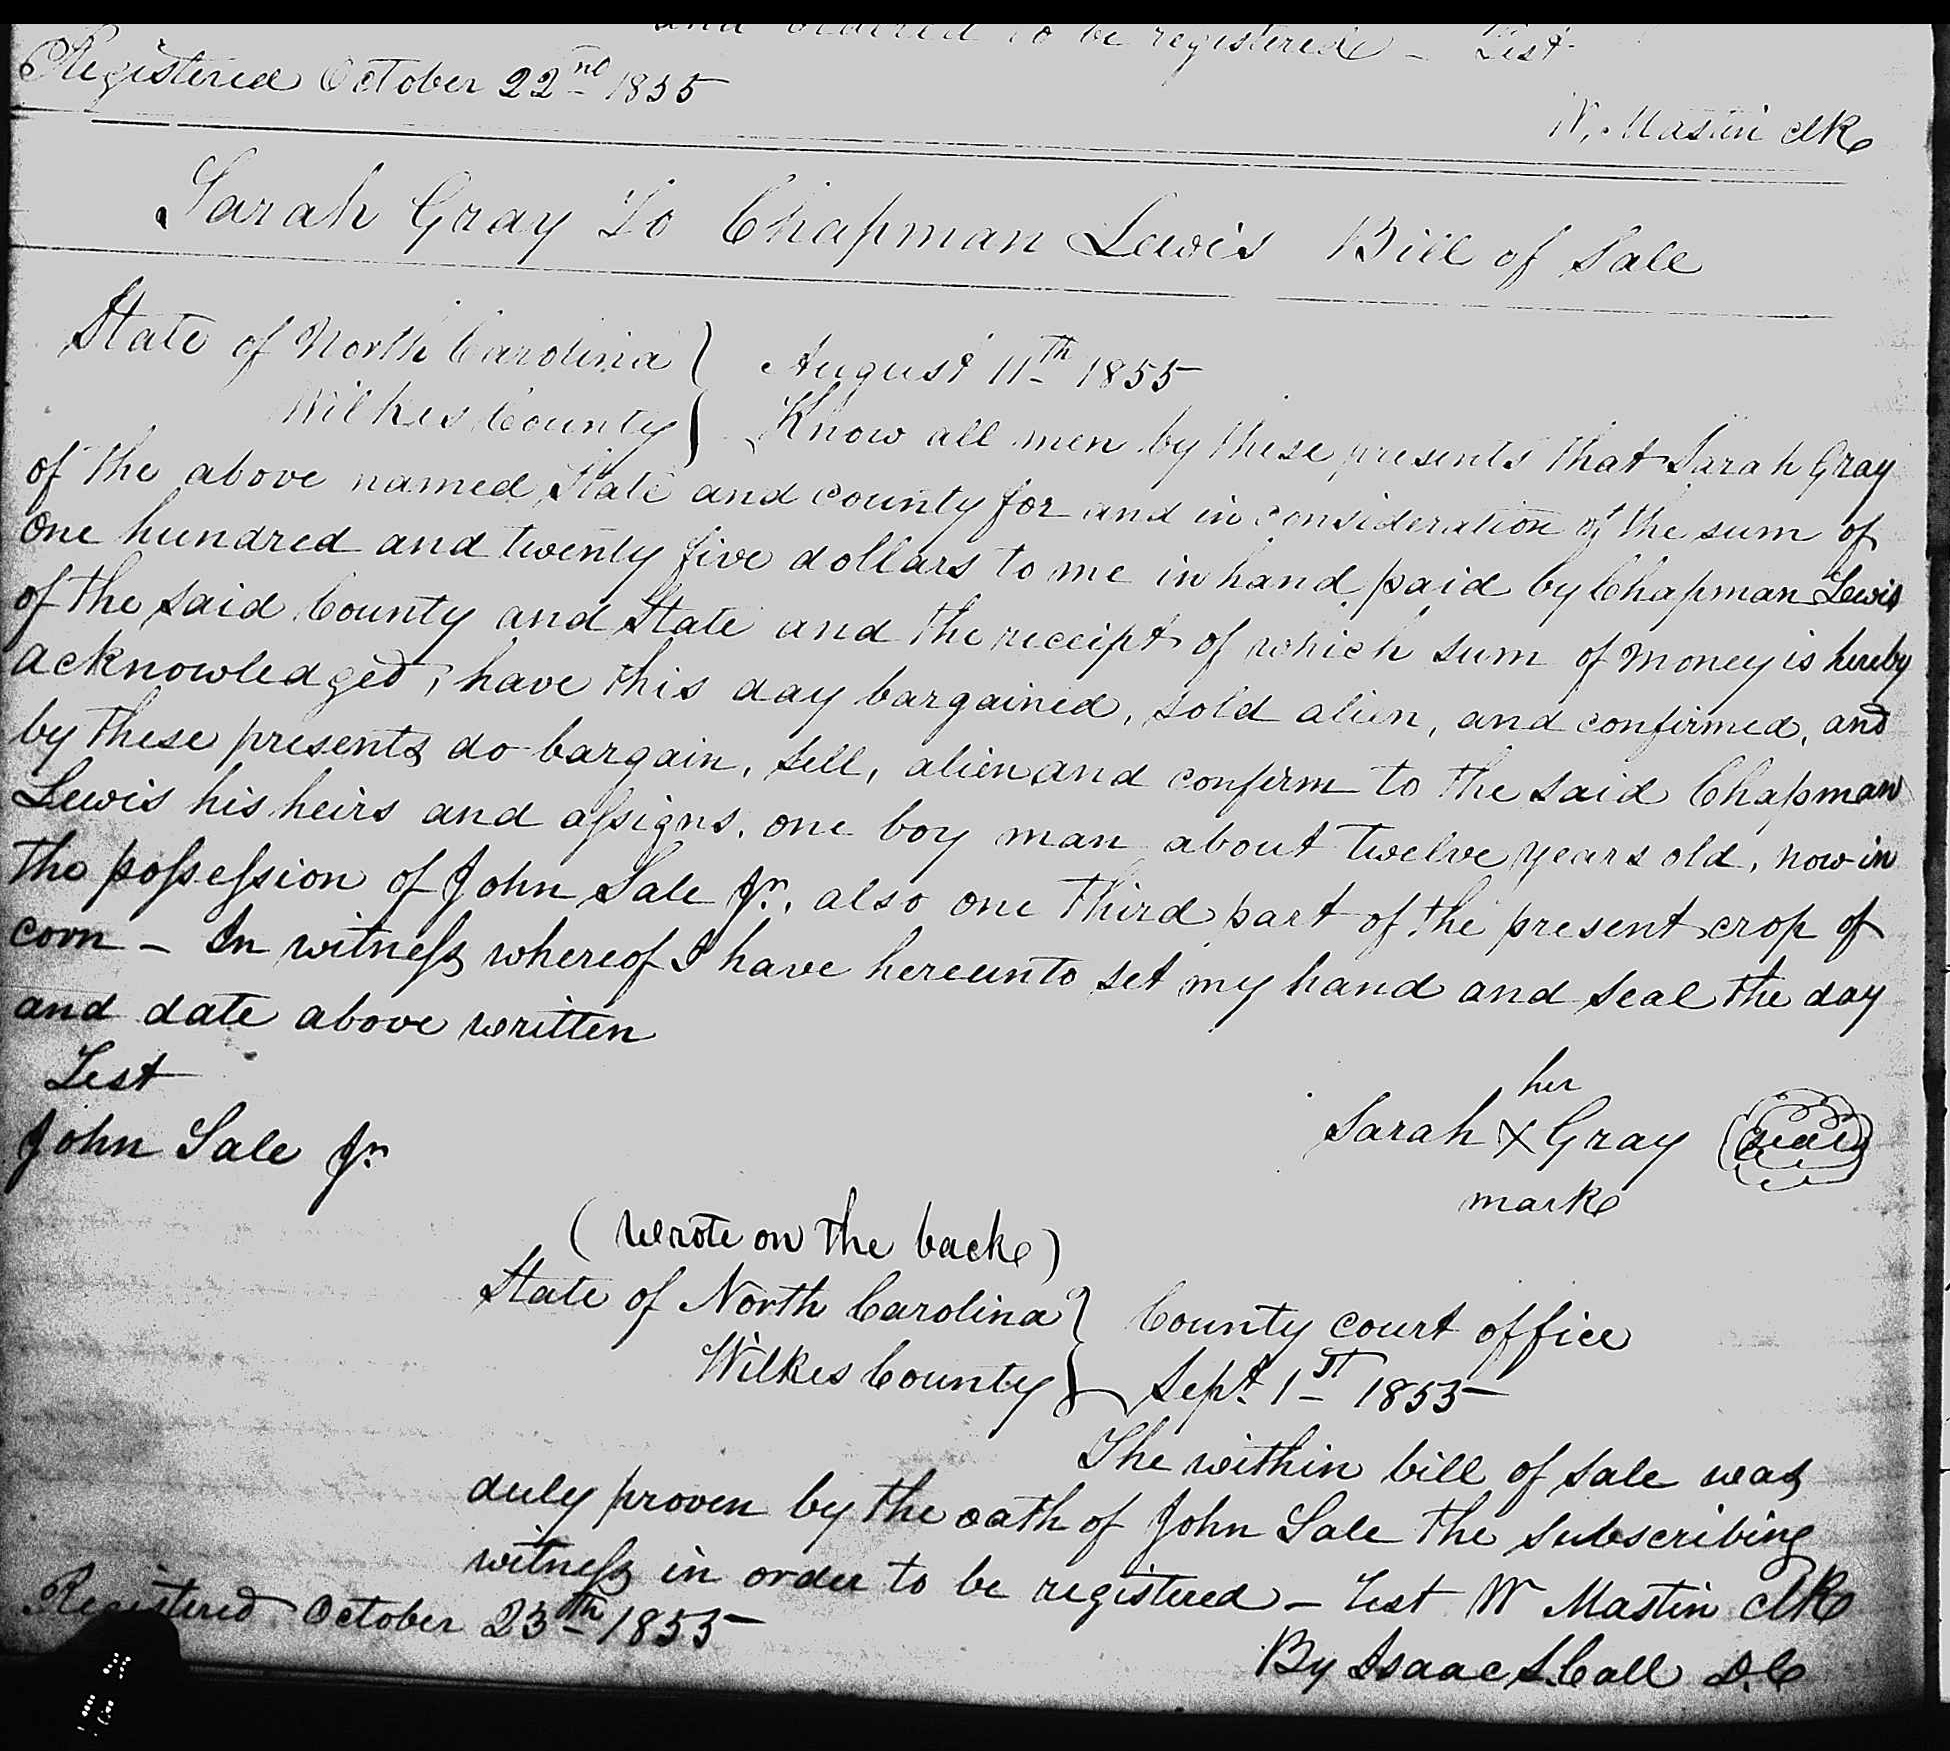 and ordered to be registered – Test
Registered October 22nd 1855
W. Mastin clk
Sarah Gray To Chapman Lewis Bill of Sale
State of North Carolina } August 11th 1855
Wilkes County } Know all men by these presents that Sarah Gray
of the above named State and county for and in consideration of the sum of
One hundred and twenty five dollars to me in hand paid by Chapman Lewis
of the said County and State and the receipt of which sum of money is hereby
acknowledged, have this day bargained, sold alien, and confirmed, and
by these presents do bargain, sell, alien and confirm to the said Chapman
Lewis his heirs and assigns, one boy man about twelve years old, now in
the possession of John Sale Jr. also one third part of the present crop of
corn – In witness whereof I have hereunto set my hand and seal the day
and date above written
Test
her
John Sale Jr
Sarah X Gray (seal)
mark
(Wrote on the back)
State of North Carolina } County court office
Wilkes County } Sept. 1st 1855
The within bill of sale was
duly proven by the oath of John Sale the subscribing
witness in order to be registered – Test W Mastin clk
Registered October 23th 1855
By Isaac S. Call D.C